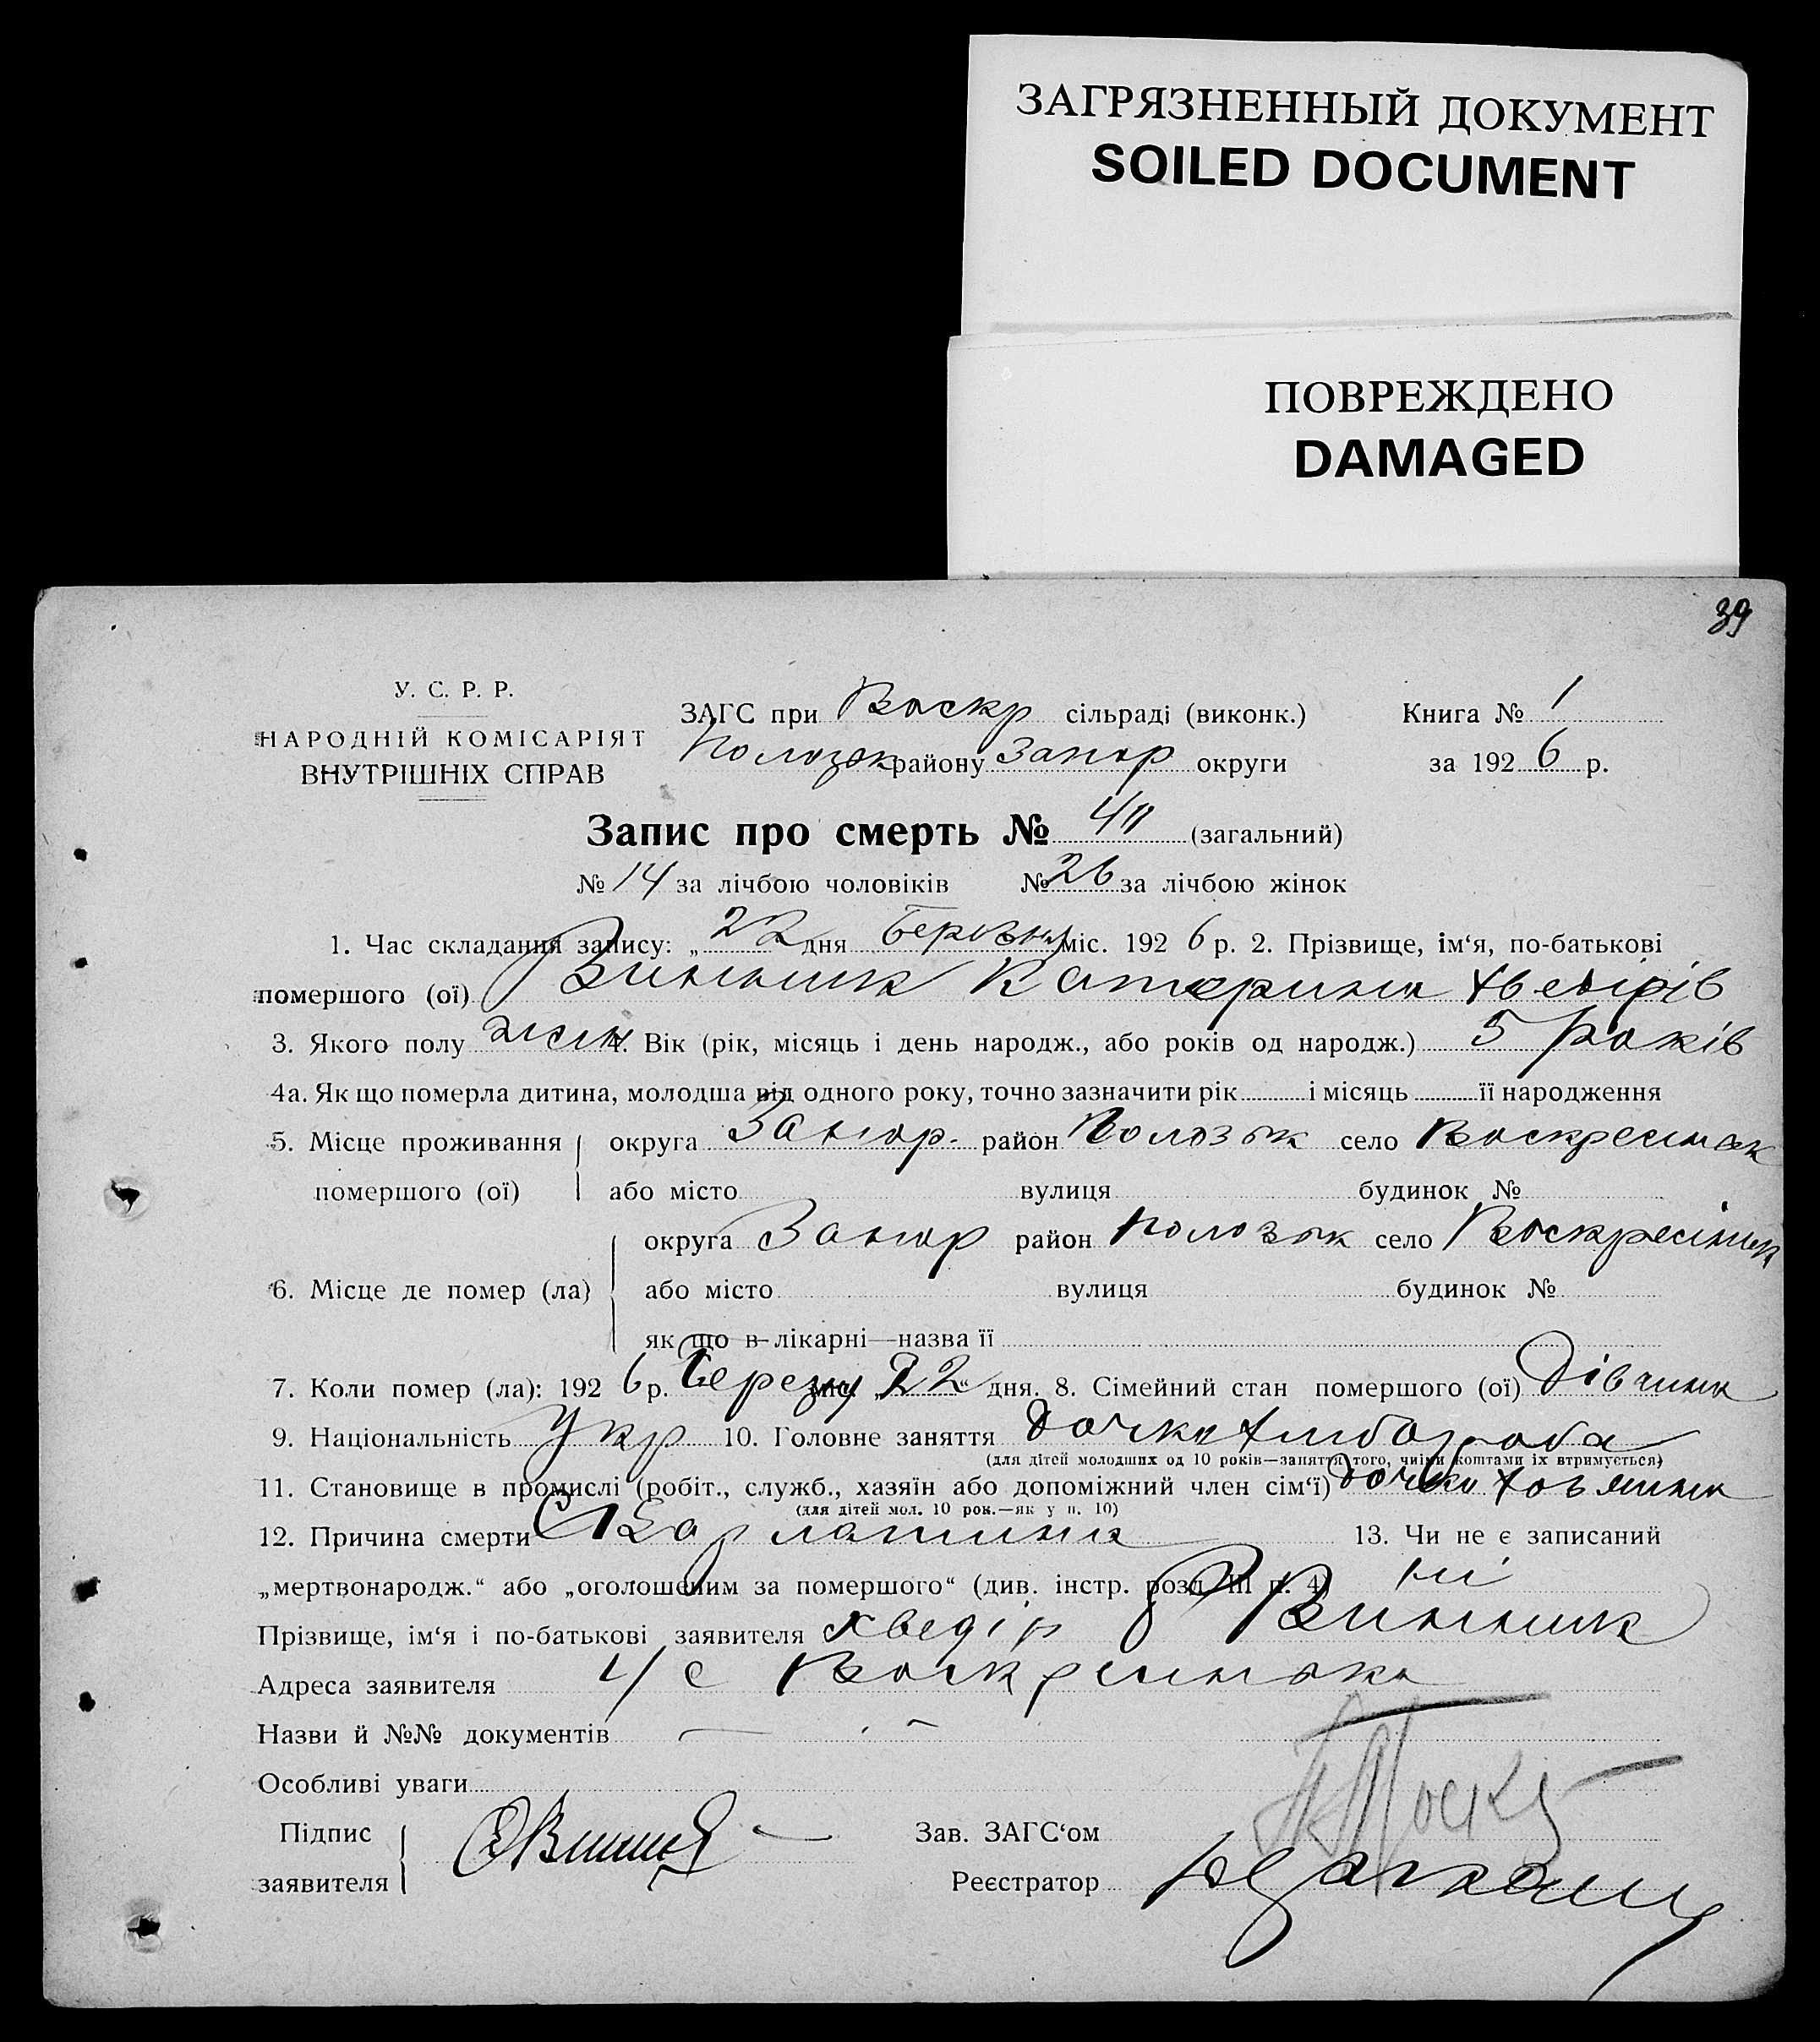 ЗАГРЯЗНЕННЫЙ ДОКУМЕНТ
SOILED DOCUMENT
ПОВРЕЖДЕНО
DAMAGED
39
У. С. Р. Р.
НАРОДНІЙ КОМІСАРІЯТ
ВНУТРІШНІХ СПРАВ
ЗАГС при Воскр сільраді (виконк.) Книга № 1
Пологзк району Запор округи за 192 6 р.
Запис про смерть № 40 (загальний)
№ 14 за лічбою чоловіків № 26 за лічбою жінок
1. Час складання запису: „ 22 дня березня міс. 192 6 р. 2. Прізвище, ім‘я, по-батькові
помершого (ої) Винник Катерина Хведірів
3. Якого полу жін 4. Вік (рік, місяць і день народж., або років од народж.) 5 Років
4а. Як що померла дитина, молодша від одного року, точно зазначити рік і місяць її народження
5. Місце проживання округа Запор. район село
помершого (ої) або місто вулиця будинок №
округа Запор район село
6. Місце де помер (ла) або місто вулиця будинок №
як що в лікарні—назва її
7. Коли помер (ла): 192 6 р. Березня міс. „ 22 “ дня. 8. Сімейний стан помершого (ої) дівчина
9. Національність Укр 10. Головне заняття дочка хлібороба
(для дітей молодших од 10 років—заняття того, чиїми коштами їх втримується)
11. Становище в промислі (робіт., служб., хазяїн або допоміжний член сім‘ї) дочка
(для дітей мол. 10 рок.—як у п. 10)
12. Причина смерти Скарлатина 13. Чи не є записаний
„мертвонародж.“ або „оголошеним за помершого“ (див. інстр. розд. III п. 4) ні
Прізвище, ім‘я і по-батькові заявителя Хведір Винник
Адреса заявителя с Воскресинка
Назви й №№ документів
Особливі уваги
Підпис
заявителя
Зав. ЗАГС‘ом
Реєстратор